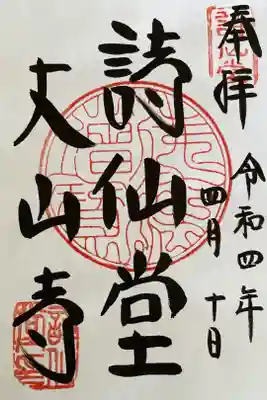 奉拝
令和四年
四月十日
詩仙堂
丈山寺